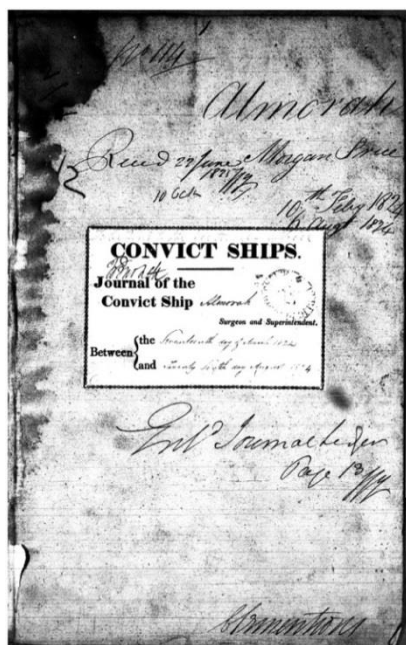 Almorah
Recd 22 June Morgan Price
1825
10 Oct
10th Feby 1824
Augt 1824
CONVICT SHIPS.
Journal of the
Convict Ship Almorah
Surgeon and Superintendent.
Between { the Seventeenth day of March 1824
and Twenty sixth day August 1824
Entd Journal Ledger
Page 13